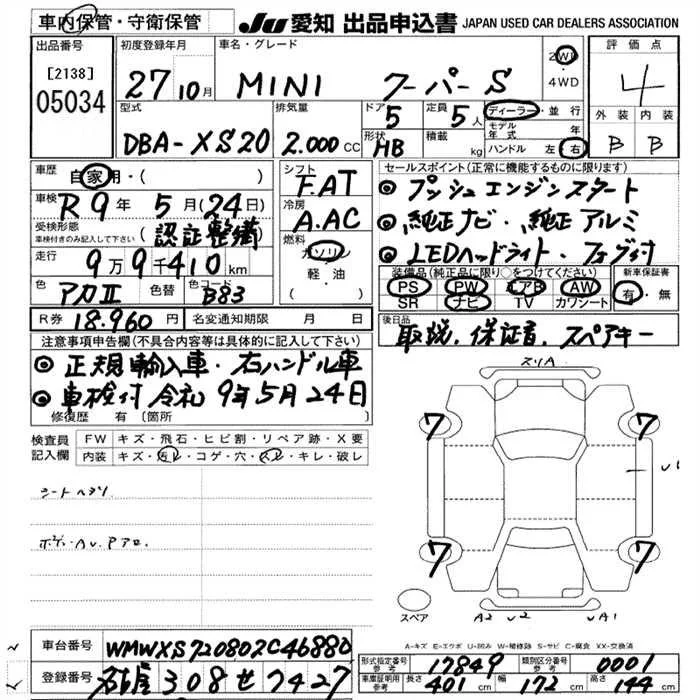 車内保管・守衛保管 JU 愛知 出品申込書 JAPAN USED CAR DEALERS ASSOCIATION
出品番号 [2138] 05034
初度登録年月 27 10月
車名・グレード MINI クーパーS
2WD・4WD
評価点 4
外装 B 内装 B
型式 DBA-XS20
排気量 2.000 CC
ドア 5 形状 HB
定員 5人 積載 kg
ディーラー・並行
モデル年式 年
ハンドル 左 右
車歴 自家用・( )
車検 R9年 5月(24日)
受検形態 車検付きのみ記入して下さい (認証整備)
走行 9万9千410km
色 アカⅡ 色替 色コード B83
シフト F.AT
冷房 A.AC
燃料 ガソリン 軽・油
セールスポイント(正常に機能するものに限ります)
◎プッシュエンジンスタート
◎純正ナビ・純正アルミ
◎LEDヘッドライト・フォグ付
装備品(純正品に限り○をつけてください)
PS PW エアB AW
SR ナビ TV カワシート
新車保証書 有・無
R券 18.960円 名変通知期限 月 日
後日品 取説.保証書.スペアキー
注意事項申告欄(不具合内容等は具体的に記入して下さい)
◎正規輸入車・右ハンドル車
◎車検付令和9年5月24日
修復歴 有 〔箇所
検査員記入欄
FW キズ・飛石・ヒビ割・リペア跡・X要
内装 キズ・汚レ・コゲ・穴・スレ・キレ・破レ
シートヘタリ
ボディAU.Pアロ.
スリA
7 7
U1
7 7
スペア
A2 U2 UA1
A-キズ E-エクボ U-凹み W-補修跡 S-サビ C-腐食 XX-交換済
車台番号 WMWXS720802C46880
登録番号 名古屋 308 せ 7427
形式指定番号 参考 17849 類別区分番号 参考 0001
車庫証明用 参考 長さ 401cm 幅 172cm 高さ 144cm